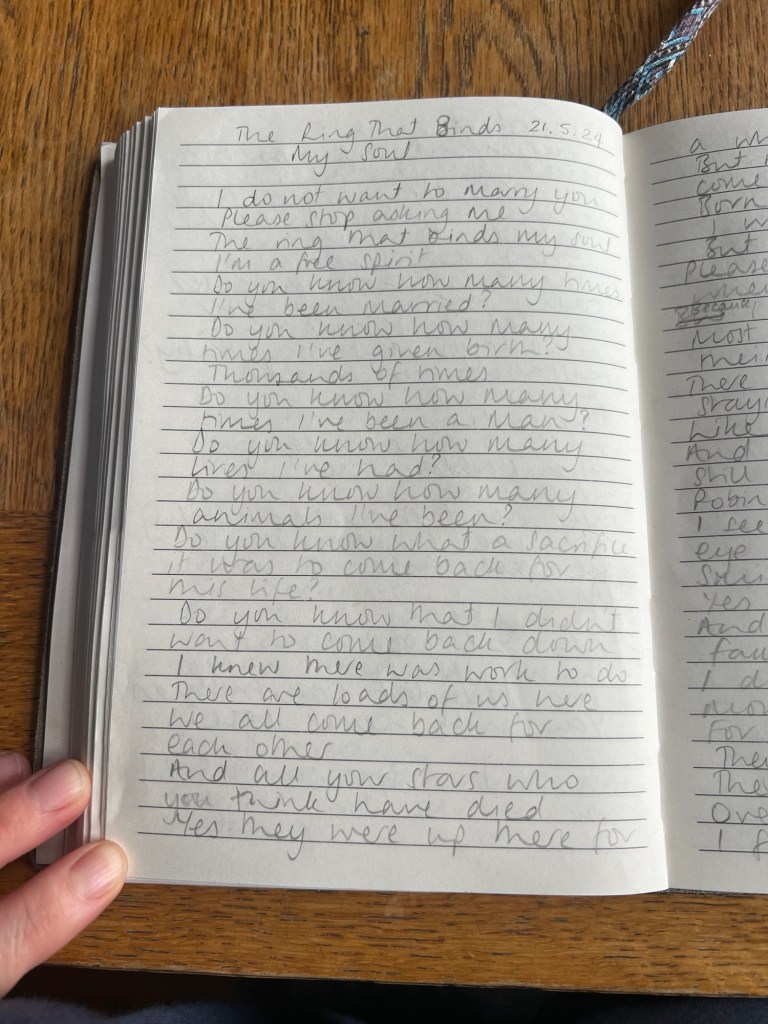 The Ring That Binds 21.5.24
My Soul
I do not want to marry you
Please stop asking me
The ring that binds my soul
I'm a free spirit
Do you know how many times
I've been married?
Do you know how many
times I've given birth?
Thousands of times
Do you know how many
times I've been a man?
Do you know how many
lives I've had?
Do you know how many
animals I've been?
Do you know what a sacrifice
it was to come back for
this life?
Do you know that I didn't
want to come back down
I knew there was work to do
There are loads of us here
We all come back for
each other
And all your stars who
you think have died
Yes they were up there for
a
But
come
Born
I
But
Please
Most
There
Like
And
Still
Robin
I see
eye
Yes
And
I
For
I